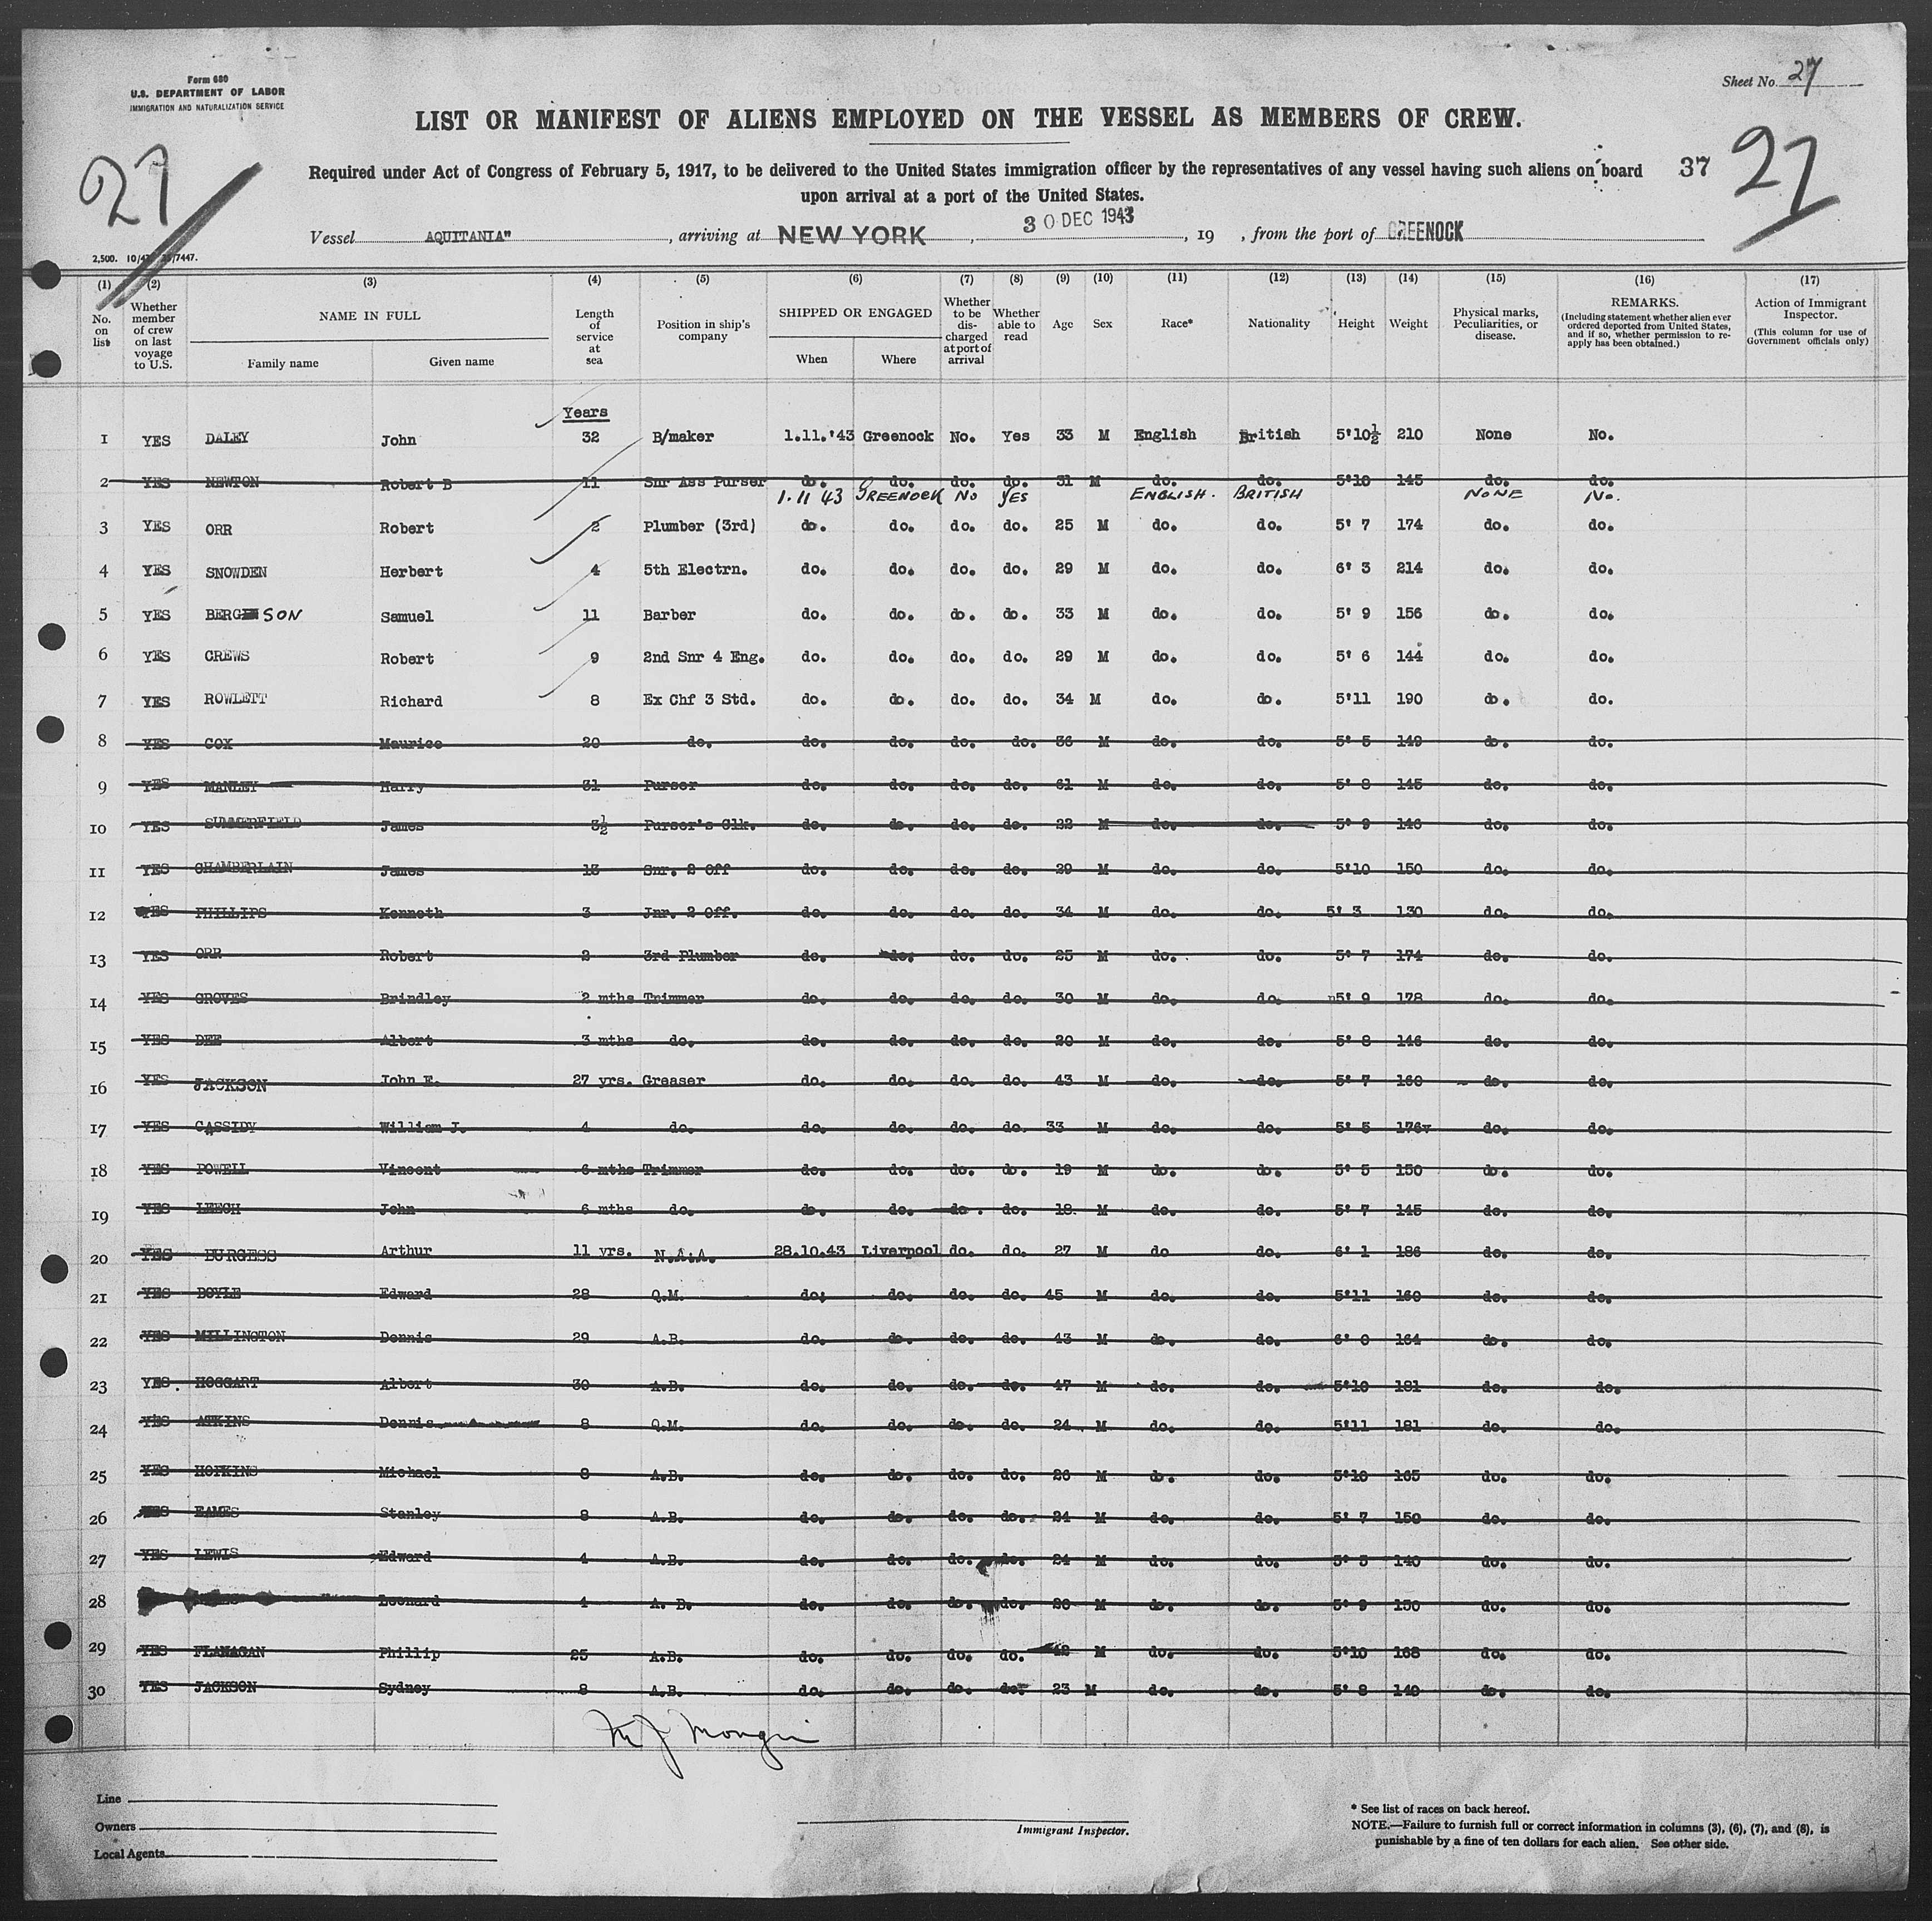 Form 680
U.S. DEPARTMENT OF LABOR
IMMIGRATION AND NATURALIZATION SERVICE
Sheet No. 27
LIST OR MANIFEST OF ALIENS EMPLOYED ON THE VESSEL AS MEMBERS OF CREW.
27
Required under Act of Congress of February 5, 1917, to be delivered to the United States immigration officer by the representatives of any vessel having such aliens on board
upon arrival at a port of the United States.
37
27
Vessel AQUITANIA" , arriving at NEW YORK , 30 DEC 1943 , 19 , from the port of GREENOCK
(1) (2) (3) (4) (5) (6) (7) (8) (9) (10) (11) (12) (13) (14) (15) (16) (17)
No. on list
Whether member of crew on last voyage to U.S.
NAME IN FULL
Family name Given name
Length of service at sea
Position in ship's company
SHIPPED OR ENGAGED
When Where
Whether to be discharged at port of arrival
Whether able to read
Age Sex Race* Nationality Height Weight
Physical marks, Peculiarities, or disease.
REMARKS.
(Including statement whether alien ever ordered deported from United States, and if so, whether permission to reapply has been obtained.)
Action of Immigrant Inspector.
(This column for use of Government officials only)
Years
1 YES DALEY John 32 B/maker 1.11.'43 Greenock No. Yes 33 M English British 5'10½ 210 None No.
2 YES NEWTON Robert B 11 Snr Ass Purser do. do. do. do. 31 M do. do. 5'10 145 do. do.
1.11 43 GREENOCK NO YES ENGLISH. BRITISH NONE No.
3 YES ORR Robert 2 Plumber (3rd) do. do. do. do. 25 M do. do. 5' 7 174 do. do.
4 YES SNOWDEN Herbert 4 5th Electrn. do. do. do. do. 29 M do. do. 6' 3 214 do. do.
5 YES BERG SON Samuel 11 Barber do. do. do. do. 33 M do. do. 5' 9 156 do. do.
6 YES CREWS Robert 9 2nd Snr 4 Eng. do. do. do. do. 29 M do. do. 5' 6 144 do. do.
7 YES ROWLETT Richard 8 Ex Chf 3 Std. do. do. do. do. 34 M do. do. 5'11 190 do. do.
8 YES COX Maurice 20 do. do. do. do. do. 36 M do. do. 5' 5 149 do. do.
9 YES MANLEY Harry 31 Purser do. do. do. do. 61 M do. do. 5' 8 145 do. do.
10 YES SUMMERFIELD James 3½ Purser's Clk. do. do. do. do. 22 M do. do. 5' 9 146 do. do.
11 YES CHAMBERLAIN James 13 Snr. 2 Off do. do. do. do. 29 M do. do. 5'10 150 do. do.
12 YES PHILLIPS Kenneth 3 Jnr. 2 Off. do. do. do. do. 34 M do. do. 5' 3 130 do. do.
13 YES ORR Robert 2 3rd Plumber do. do. do. do. 25 M do. do. 5' 7 174 do. do.
14 YES GROVES Brindley 2 mths Trimmer do. do. do. do. 30 M do. do. 5' 9 178 do. do.
15 YES DEE Albert 3 mths do. do. do. do. do. 20 M do. do. 5' 8 146 do. do.
16 YES JACKSON John E. 27 yrs. Greaser do. do. do. do. 43 M do. do. 5' 7 160 do. do.
17 YES CASSIDY William J. 4 do. do. do. do. do. 33 M do. do. 5' 5 176 do. do.
18 YES POWELL Vincent 6 mths Trimmer do. do. do. do. 19 M do. do. 5' 5 150 do. do.
19 YES LEECH John 6 mths do. do. do. do. do. 18 M do. do. 5' 7 145 do. do.
20 YES BURGESS Arthur 11 yrs. N.A.A. 28.10.43 Liverpool do. do. 27 M do do. 6' 1 186 do. do.
21 YES BOYLE Edward 28 Q.M. do. do. do. do. 45 M do. do. 5'11 160 do. do.
22 YES MILLINGTON Dennis 29 A.B. do. do. do. do. 43 M do. do. 6' 0 164 do. do.
23 YES HOGGART Albert 30 A.B. do. do. do. do. 47 M do. do. 5'10 181 do. do.
24 YES ATKINS Dennis 8 Q.M. do. do. do. do. 24 M do. do. 5'11 181 do. do.
25 YES HOPKINS Michael 8 A.B. do. do. do. do. 26 M do. do. 5'10 165 do. do.
26 YES EAMES Stanley 8 A.B. do. do. do. do. 24 M do. do. 5' 7 150 do. do.
27 YES LEWIS Edward 4 A.B. do. do. do. do. 24 M do. do. 5' 5 140 do. do.
28 Leonard 4 A. B. do. do. do. do. 20 M do. do. 5' 9 150 do. do.
29 YES FLANAGAN Phillip 25 A.B. do. do. do. do. 42 M do. do. 5'10 168 do. do.
30 YES JACKSON Sydney 8 A.B. do. do. do. do. 23 M do. do. 5' 8 140 do. do.
Line
Owners
Local Agents
Immigrant Inspector.
* See list of races on back hereof.
NOTE.—Failure to furnish full or correct information in columns (3), (6), (7), and (8), is
punishable by a fine of ten dollars for each alien. See other side.